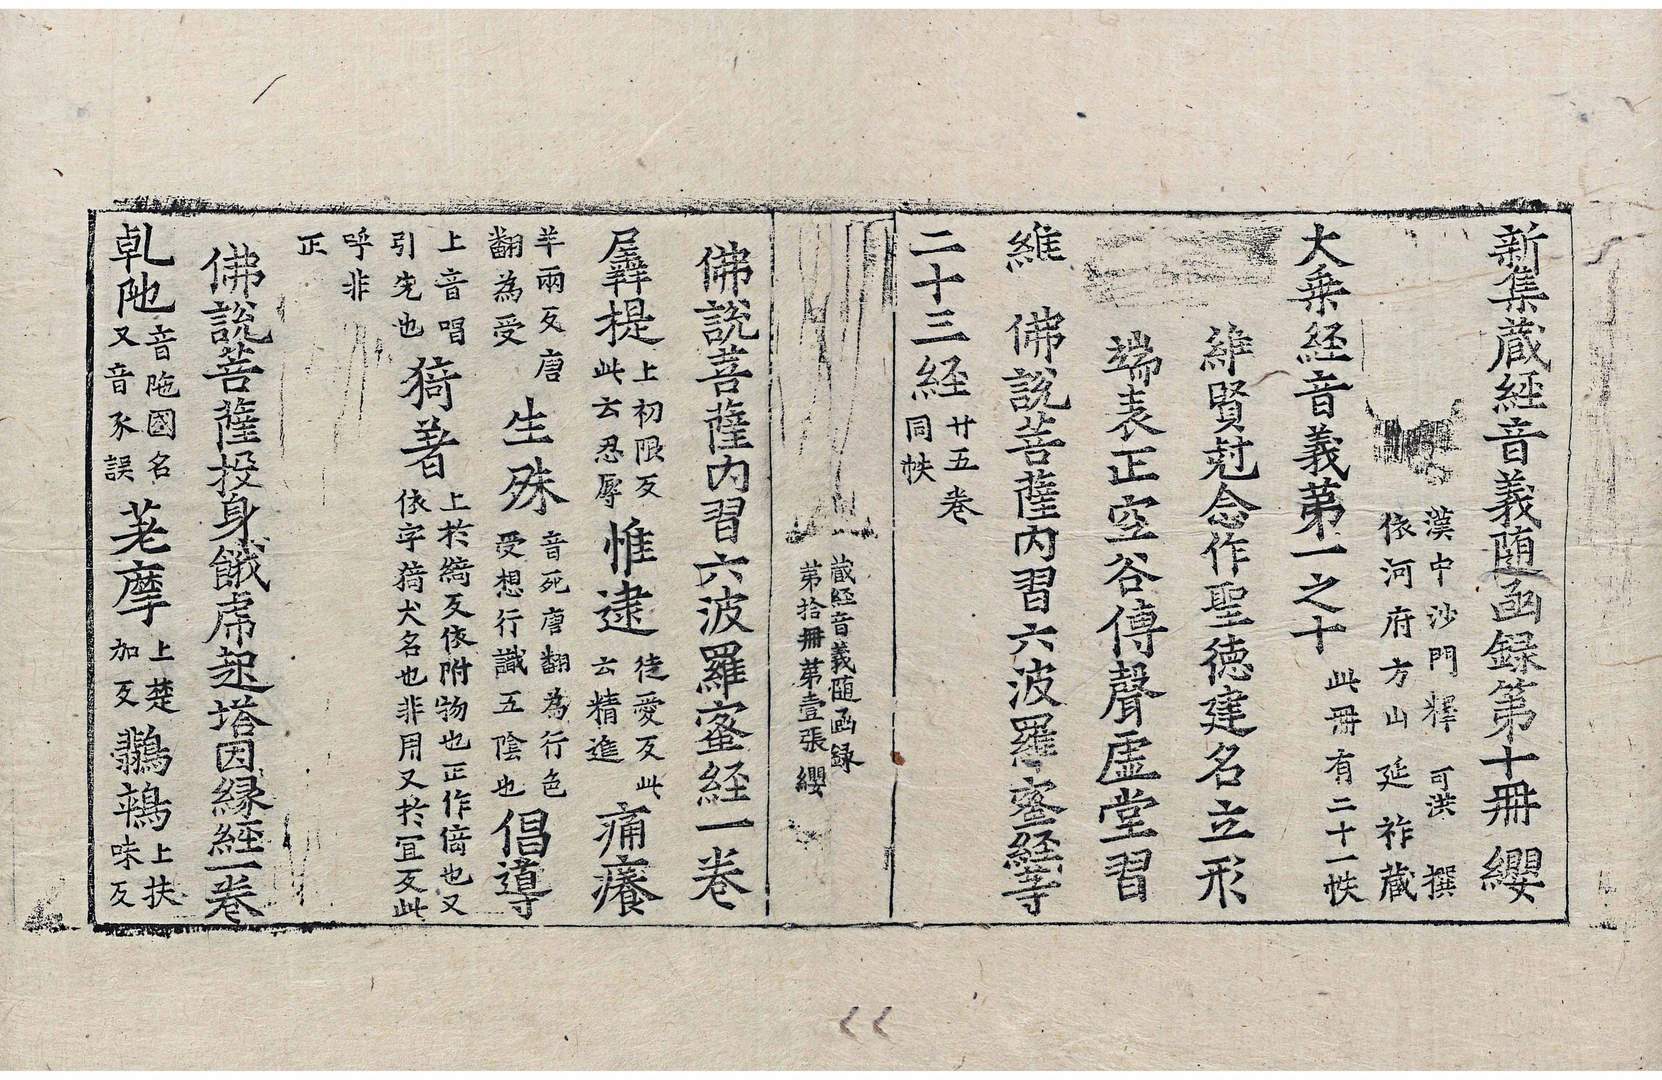 新集藏經音義随函録第十冊 纓
漢中沙門釋 可洪 撰
依河府方山延祚藏
大乗経音義第一之十 此冊有二十一帙
維賢尅念作聖德建名立形
端表正空谷傳聲虛堂習
維 佛說菩薩内習六波羅蜜経等
二十三経 廿五卷 同帙
藏経音義随函録
第拾冊第壹張 纓
佛說菩薩内習六波羅蜜経一卷
羼提 上初限反 此云忍辱 惟逮 徒愛反此 云精進 痛癢
羊兩反唐 翻為受 生殊 音死唐翻為行色 受想行識五陰也 倡導
上音唱 引先也 猗著 上於綺反依附物也正作倚也又 依字猗犬名也非用又於宜反此
呼非
正
佛說菩薩投身餓虎起塔因緣経一卷
乹陁 音陁國名 又音豕誤 荖摩 上楚 加反 鶺鴒 上扶 味反